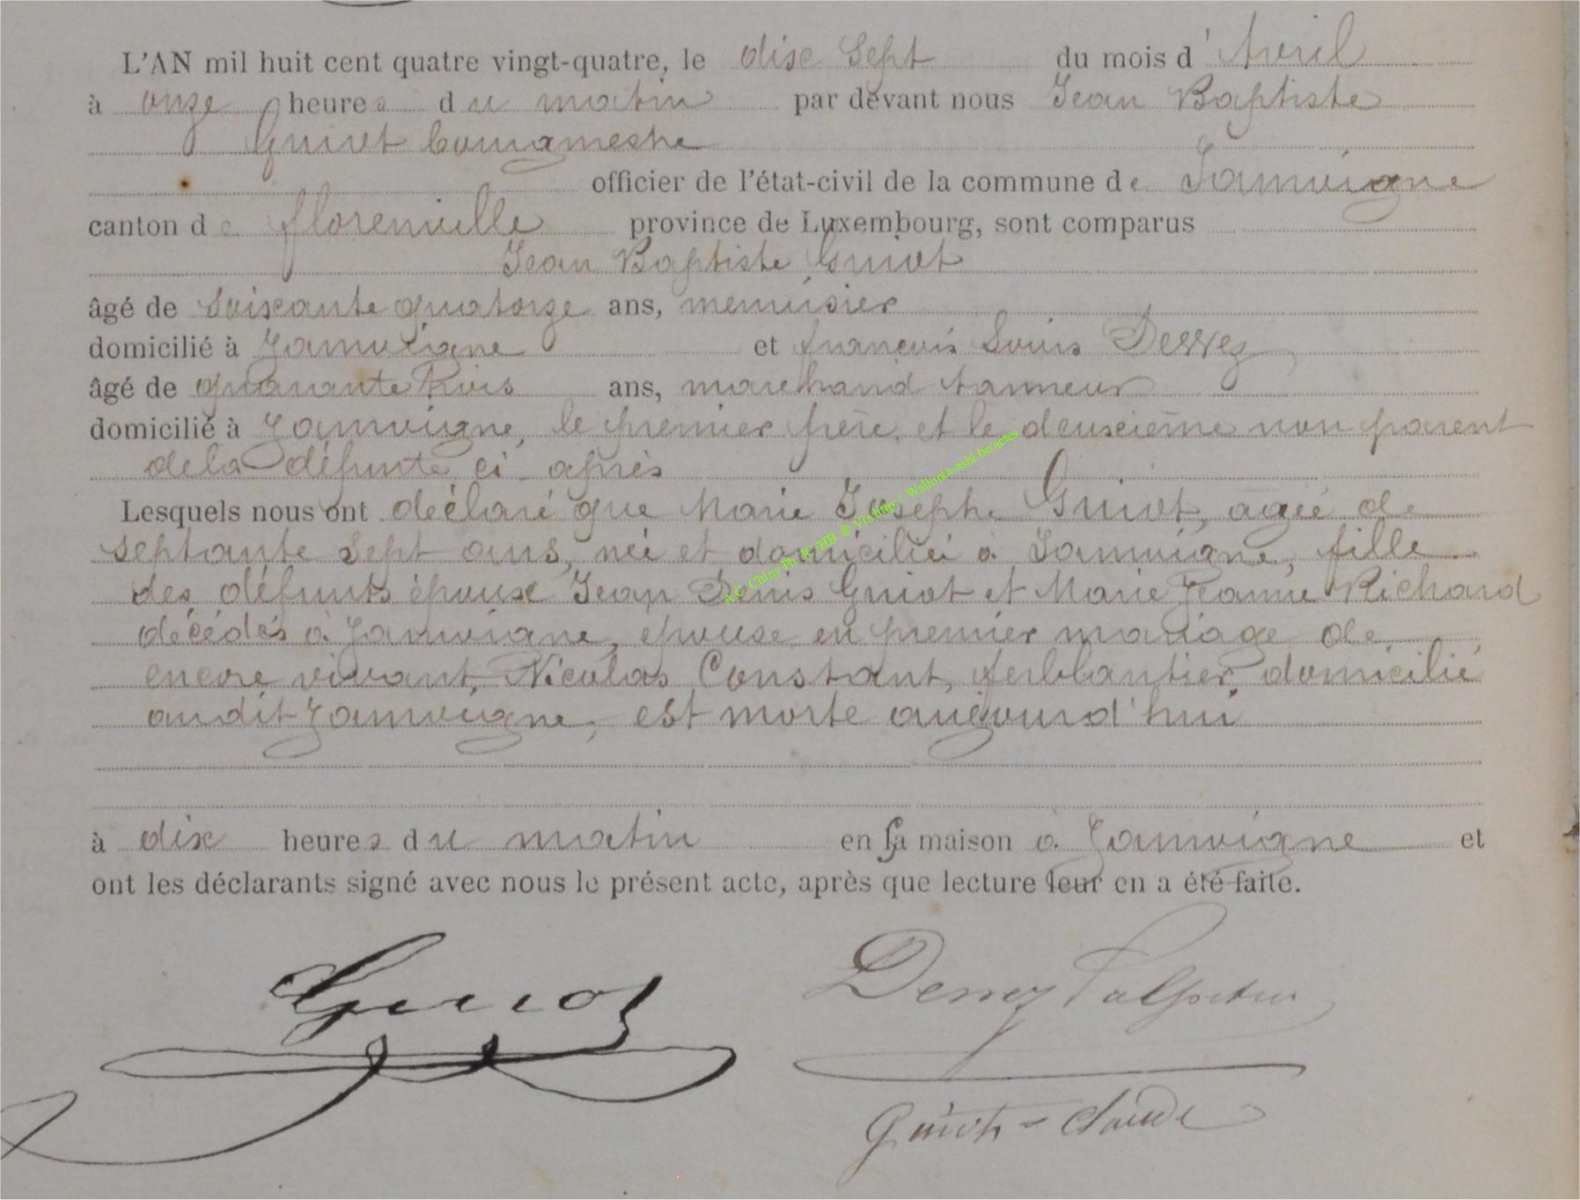 L'AN mil huit cent quatre vingt-quatre, le dix Sept du mois d'Avril
à onze heures du matin par devant nous Jean Baptiste
Guiot bourgmestre
officier de l'état-civil de la commune de Jamoigne
canton de florenville province de Luxembourg, sont comparus
Jean Baptiste Guiot
âgé de Soixante quatorze ans, menuisier
domicilié à Jamoigne et françois Louis Derrez
âgé de quarante trois ans, marchand tanneur
domicilié à Jamoigne, le premier frère, et le deuxième non parent
de la défunte ci-après
Lesquels nous ont déclaré que Marie Josephe Guiot, agée de
septante sept ans, née et domiciliée à Jamoigne, fille
des défunts époux Jean Denis Guiot et Marie Jeanne Richard
décédés à Jamoigne, epouse en premier mariage de
encore vivant, Nicolas Constant, ferblantier, domicilié
audit Jamoigne, est morte aujourd'hui
à dix heures du matin en sa maison à Jamoigne et
ont les déclarants signé avec nous le présent acte, après que lecture leur en a été faite.
Guiot
Derrez
Guiot = Claude